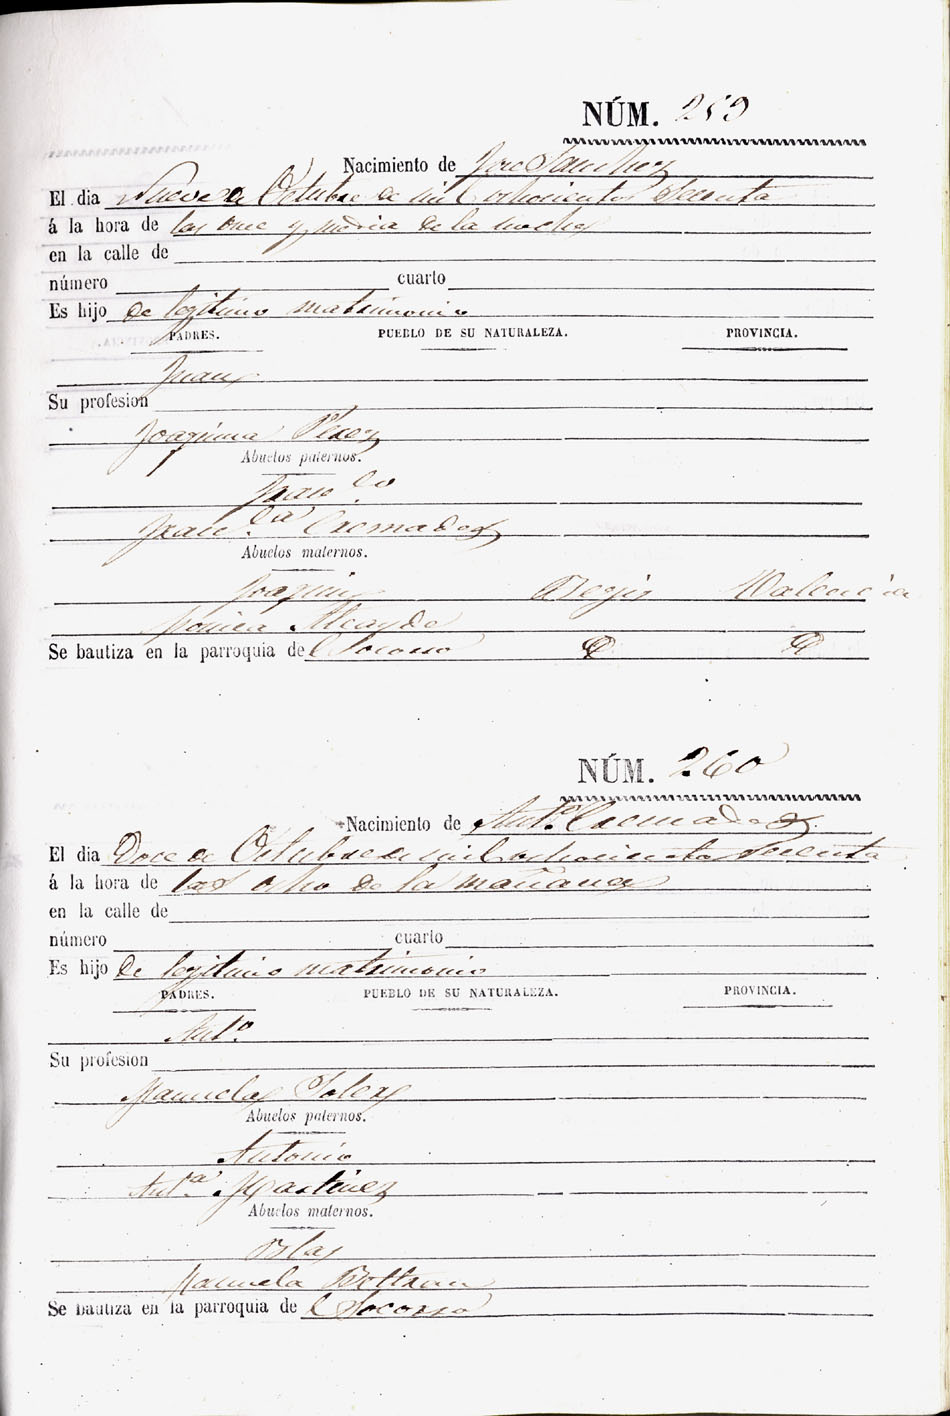 NÚM. 259
Nacimiento de Jose Sanchez
El dia Nueve de Octubre de mil ochocientos secenta
á la hora de las once y media de la noche
en la calle de
número cuarto
Es hijo de legitimo matrimonio
PADRES. PUEBLO DE SU NATURALEZA. PROVINCIA.
Juan
Su profesion
Joaquina Perez
Abuelos paternos.
Fran.co
Fran.ca Cremades
Abuelos maternos.
Joaquin Valencia
Alcayde
Se bautiza en la parroquia del Socorro
NÚM. 260
Nacimiento de Ant.o Cremades
El dia Doce de Octubre de mil ochocientos secenta
á la hora de las ocho de la mañana
en la calle de
número cuarto
Es hijo de legitimo matrimonio
PADRES. PUEBLO DE SU NATURALEZA. PROVINCIA.
Ant.o
Su profesion
Manuela Soler
Abuelos paternos.
Antonio
Ant.a Martinez
Abuelos maternos.
Blas
Manuela Beltran
Se bautiza en la parroquia de l Socorro